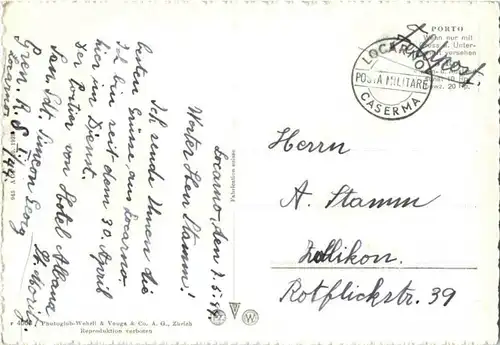 Locarno, den 7.5.49
Werter Herr Stamm!
Ich sende Ihnen die
besten Grüsse aus Locarno
Ich bin seit dem 30. April
hier im Dienst.
Der Portier von Hotel Albana
St. Moritz
San. Sdt. Simeon Georg
Gren. R. S.
Locarno
PORTO
Wenn nur mit
Unter-
versehen
Feldpost.
LOCARNO
POSTA MILITARE
CASERMA
Herrn
A. Stamm
Zollikon.
Rotflickstr. 39
Fabrication suisse
Photoglob-Wehrli & Vouga & Co. A. G., Zürich
Reproduktion verboten